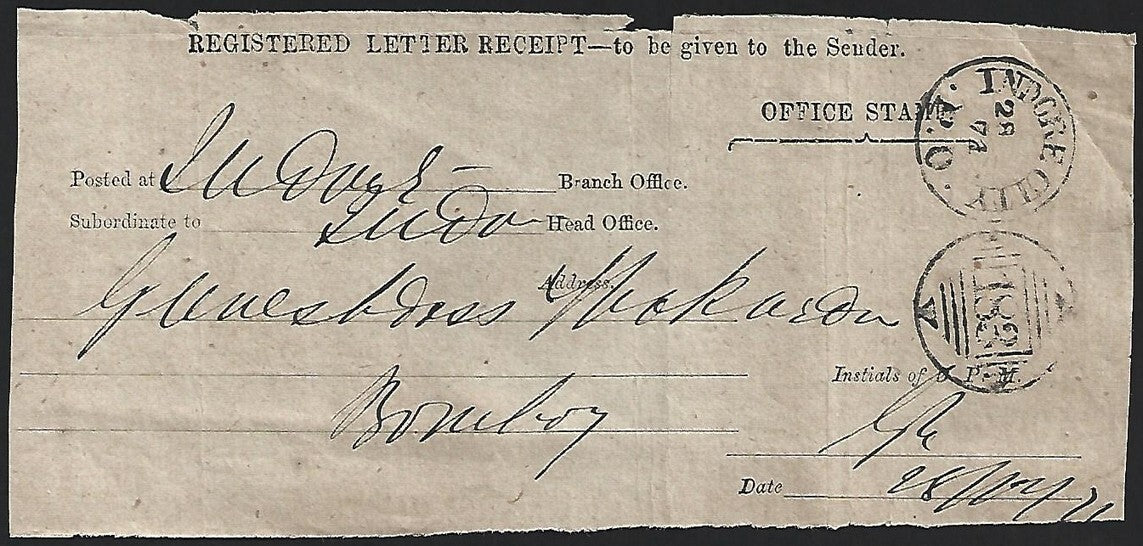 REGISTERED LETTER RECEIPT—to be given to the Sender.
OFFICE STAMP
INDORE CITY · P.O. ·
28
Posted at Indore Branch Office.
Subordinate to Indo Head Office.
Address.
Gunesh Doss
132
Instials of D. P. M.
Bombay
Date 28